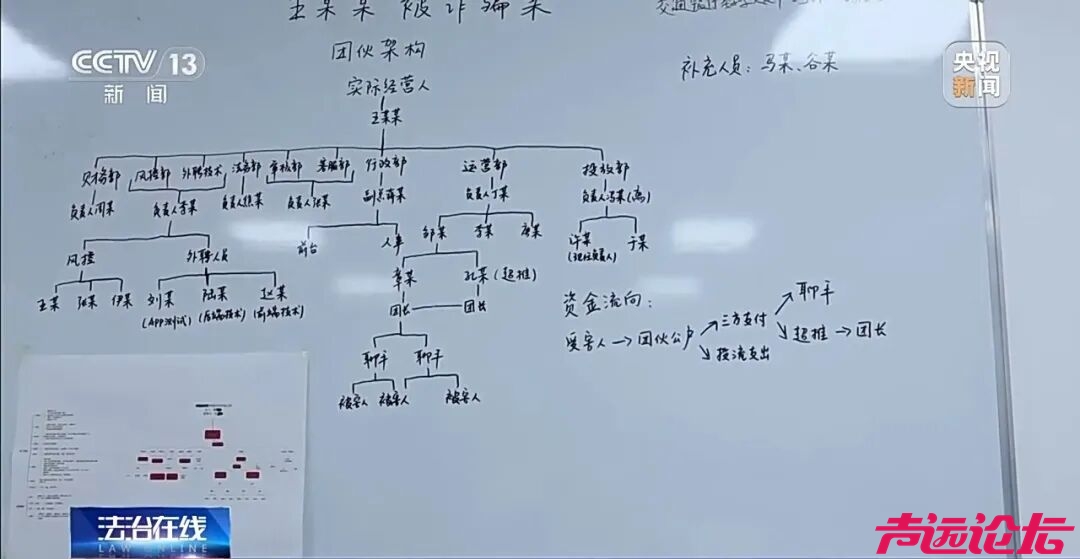 王某某被诈骗案
CCTV 13
新闻
央视
新闻
团伙架构
补充人员：马某、谷某
实际经营人
王某某
财务部 风控部 外聘技术 法务部 审核部 客服部 行政部 运营部 投放部
负责人周某 负责人李某 负责人焦某 负责人张某 副总薛某 负责人丁某 负责人冯某(离)
前台 人事 邹某 李某 唐某 许某 于某
(现任负责人)
风控 外聘人员
章某 孔某(超推)
王某 陈某 伊某 刘某 陆某 赵某
(APP测试) (后端技术) (前端技术)
团长 团长
聊手 聊手
被害人 被害人 被害人
资金流向：
受害人→团伙公户 三方支付 聊手
投流支出 超推→团长
法治在线
LAW ONLINE
声远论坛